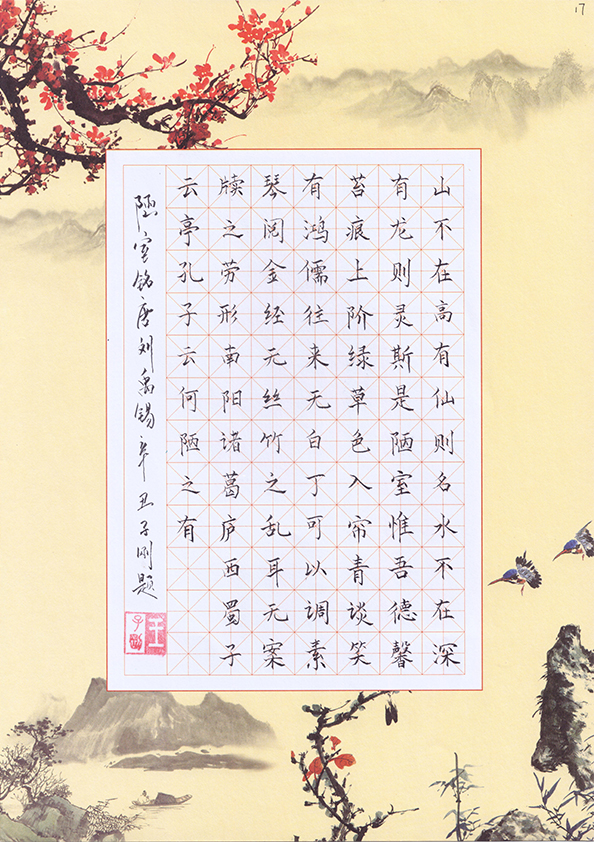 17
山不在高有仙则名水不在深
有龙则灵斯是陋室惟吾德馨
苔痕上阶绿草色入帘青谈笑
有鸿儒往来无白丁可以调素
琴阅金经无丝竹之乱耳无案
牍之劳形南阳诸葛庐西蜀子
云亭孔子云何陋之有
陋室铭唐刘禹锡辛丑子刚题